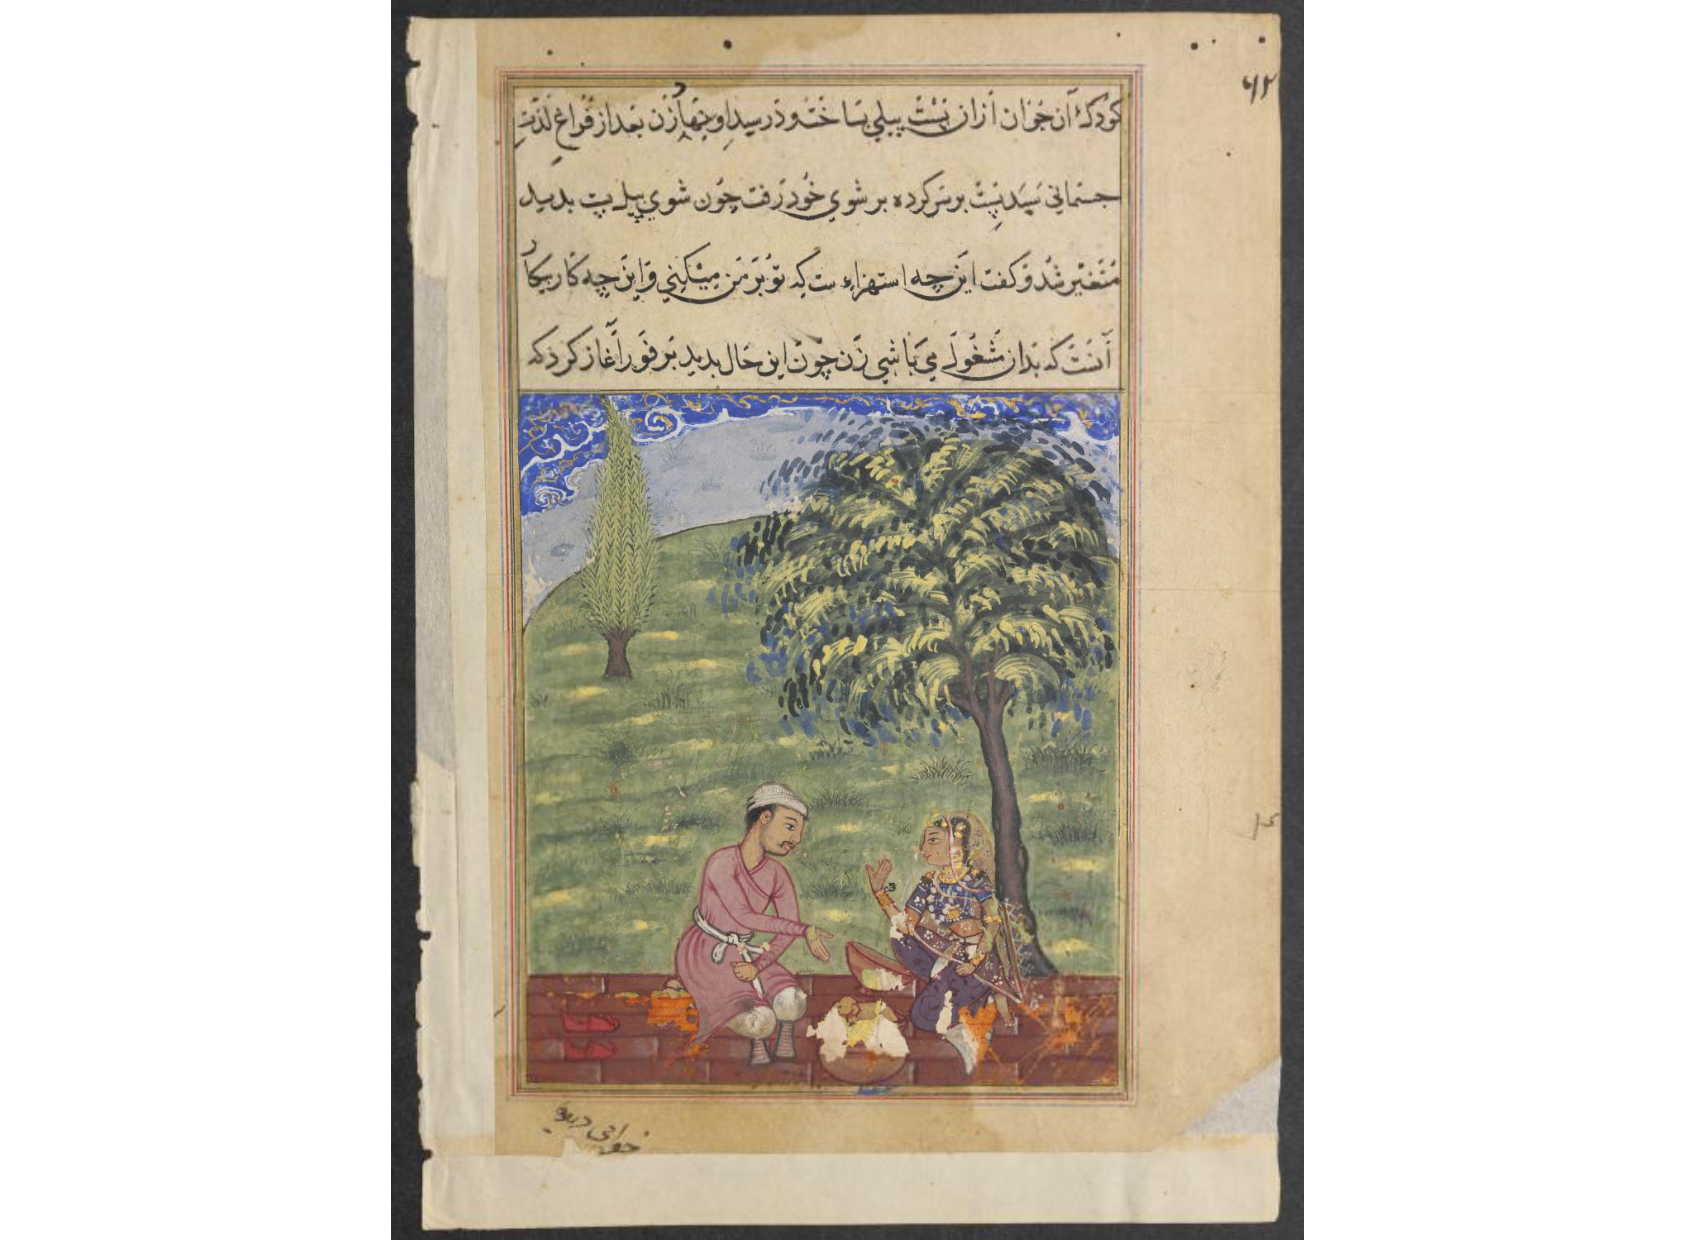 ۶۲
کودک آن جوان از ان پست پیلی ساخته و در سید او نهاد زن بعد از فراغ لذت
جسمانی سپد پست بر سر کرده بر شوی خود رفت چون شوی پیل پست بدید
متغیر شد و گفت این چه استهزاء ست که تو بر من میکنی و این چه کار بیکار
آنست که بدان مشغول می باشی زن چون این حال بدید بر فور آغاز کرد که
خوابی دیدم